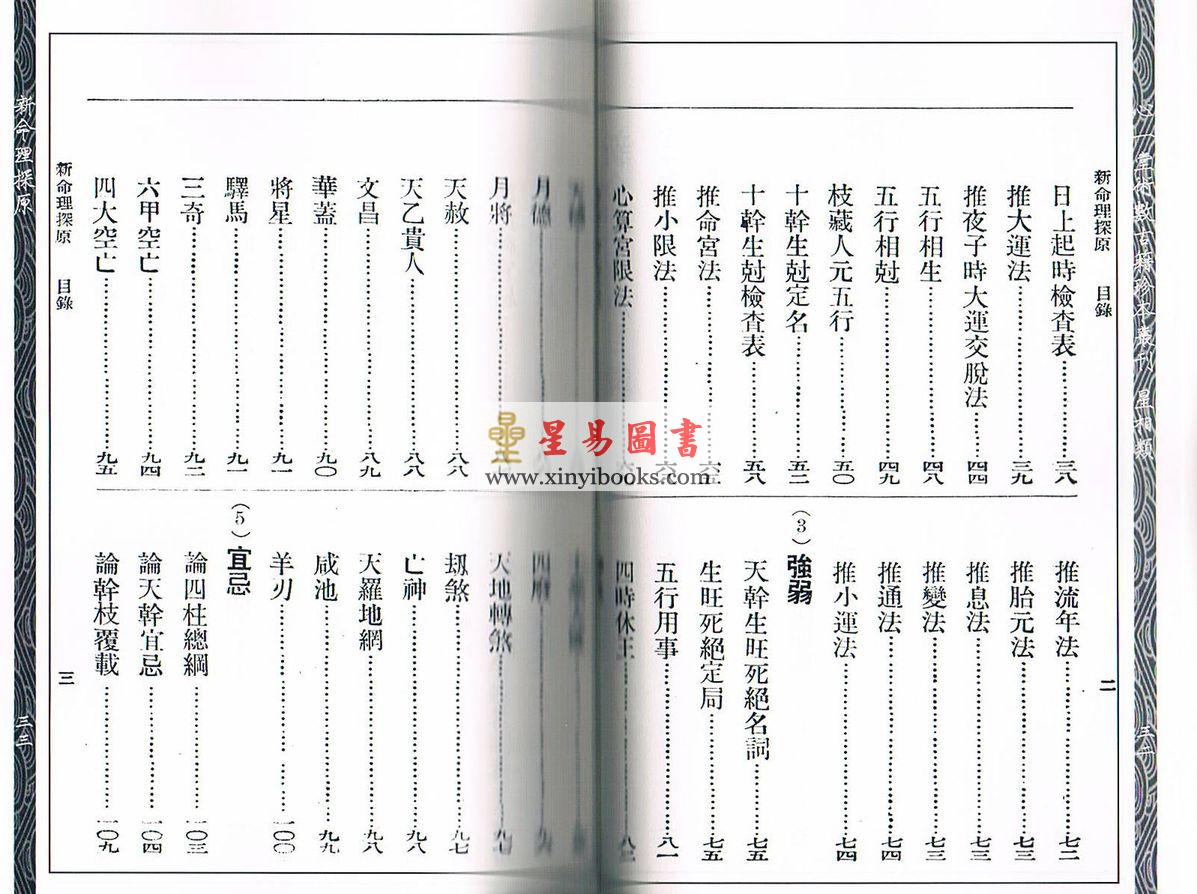 新命理探原　目錄
日上起時檢查表……三八
推大運法……三九
推夜子時大運交脫法……四四
五行相生……四八
五行相尅……四九
枝藏人元五行……五〇
十幹生尅定名……五二
十幹生尅檢查表……五八
推命宮法
推小限法
心算宮限法
推流年法……七二
推胎元法……七三
推息法……七三
推變法……七三
推通法……七四
推小運法……七四
(3)強弱
天幹生旺死絕名詞……七五
生旺死絕定局……七五
五行用事……八一
四時休王……八二
二
月德
月將
天赦……八八
天乙貴人……八八
文昌……八九
華蓋……九〇
將星……九一
驛馬……九一
三奇……九二
六甲空亡……九四
四大空亡……九五
四廢
天地轉煞……九七
刼煞……九七
亡神……九八
天羅地網……九八
咸池……九九
羊刃……一〇〇
(5)宜忌
論四柱總綱……一〇三
論天幹宜忌……一〇四
論幹枝覆載……一〇九
新命理探原　目錄
三
新命理探原
三三
星易圖書
www.xinyibooks.com